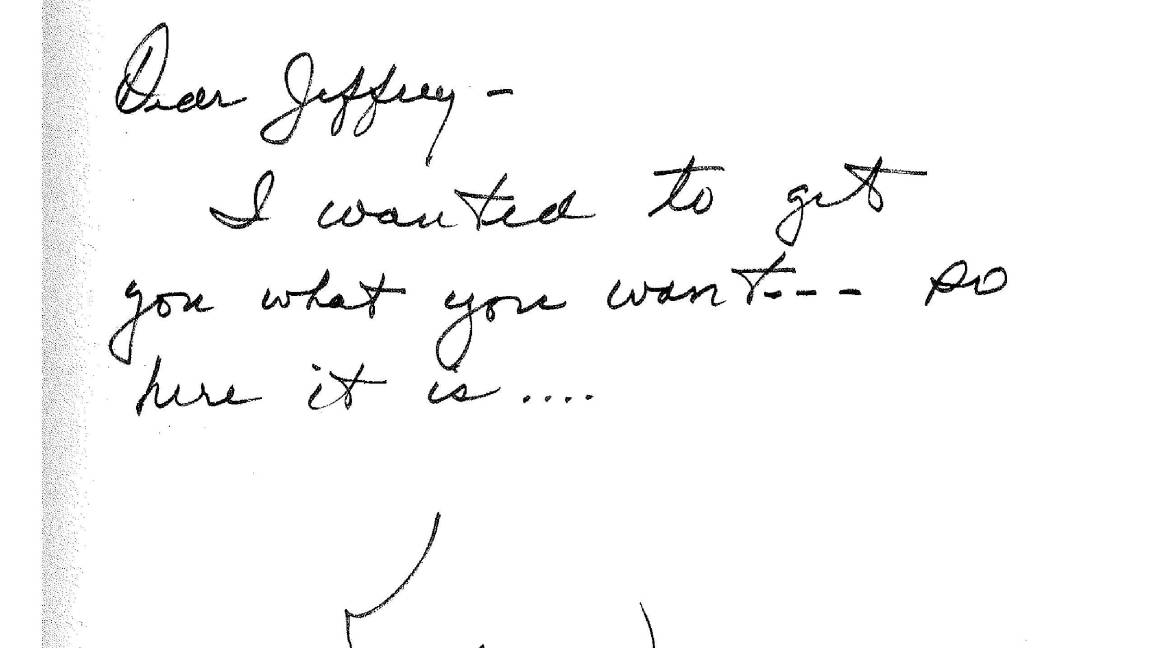 Dear Jeffrey -
I wanted to get
you what you want--- so
here it is ....